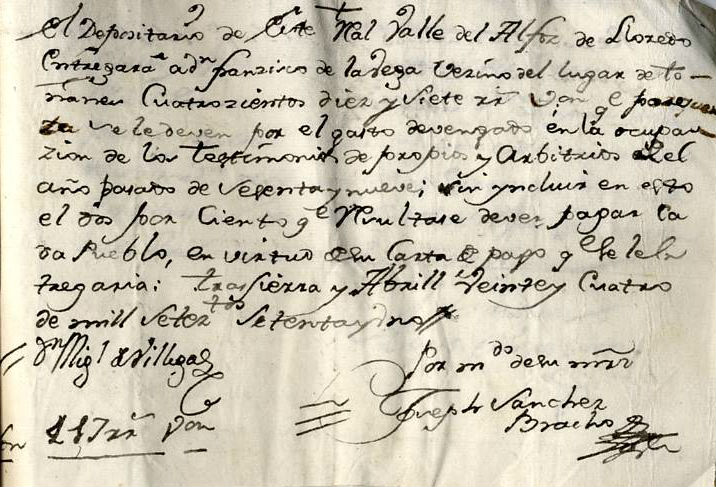 El Depositario de este Rl Valle del Alfoz de Lloredo
Entregara a dn Franzisco de la Vega Vezino del lugar de to-
ñanes Cuatrozientos diez y siete rrs Von qe por qua
ta se le deven por el gasto devengado en la ocupa
zion de los testimonios de propios y Arbitrios del
año pasado de sesenta y nueve; sin yncluir en esto
el dos por Ciento qe Resultase dever pagar ca
da Pueblo, en virtud de su Carta de pago qe se le En
tregaria: trassierra y Abrill Veinte y Cuatro
de mill setez.tos setenta y uno
Dn Migl de Villegas
Por mdo de su mrd
Joseph Sanchez
Bracho
Son 417 rrs Von